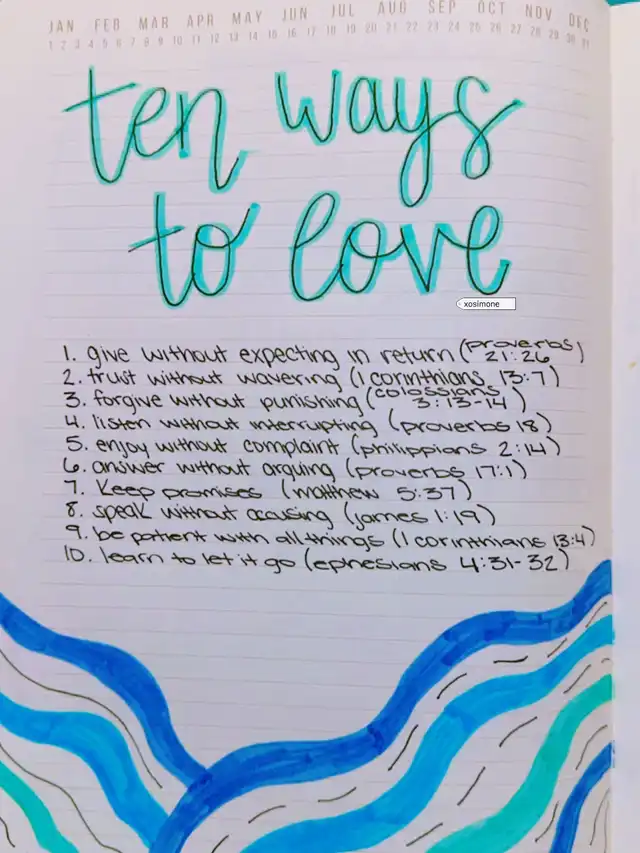 JAN FEB MAR APR MAY JUN JUL AUG SEP OCT NOV DEC
1 2 3 4 5 6 7 8 9 10 11 12 13 14 15 16 17 18 19 20 21 22 23 24 25 26 27 28 29 30 31
ten ways
to love
xosimone
1. give without expecting in return (proverbs 21:26)
2. trust without wavering (1 corinthians 13:7)
3. forgive without punishing (colossians 3:13-14)
4. listen without interrupting (proverbs 18)
5. enjoy without complaint (philippians 2:14)
6. answer without arguing (proverbs 17:1)
7. Keep promises (matthew 5:37)
8. speak without accusing (james 1:19)
9. be patient with all things (1 corinthians 13:4)
10. learn to let it go (ephesians 4:31-32)